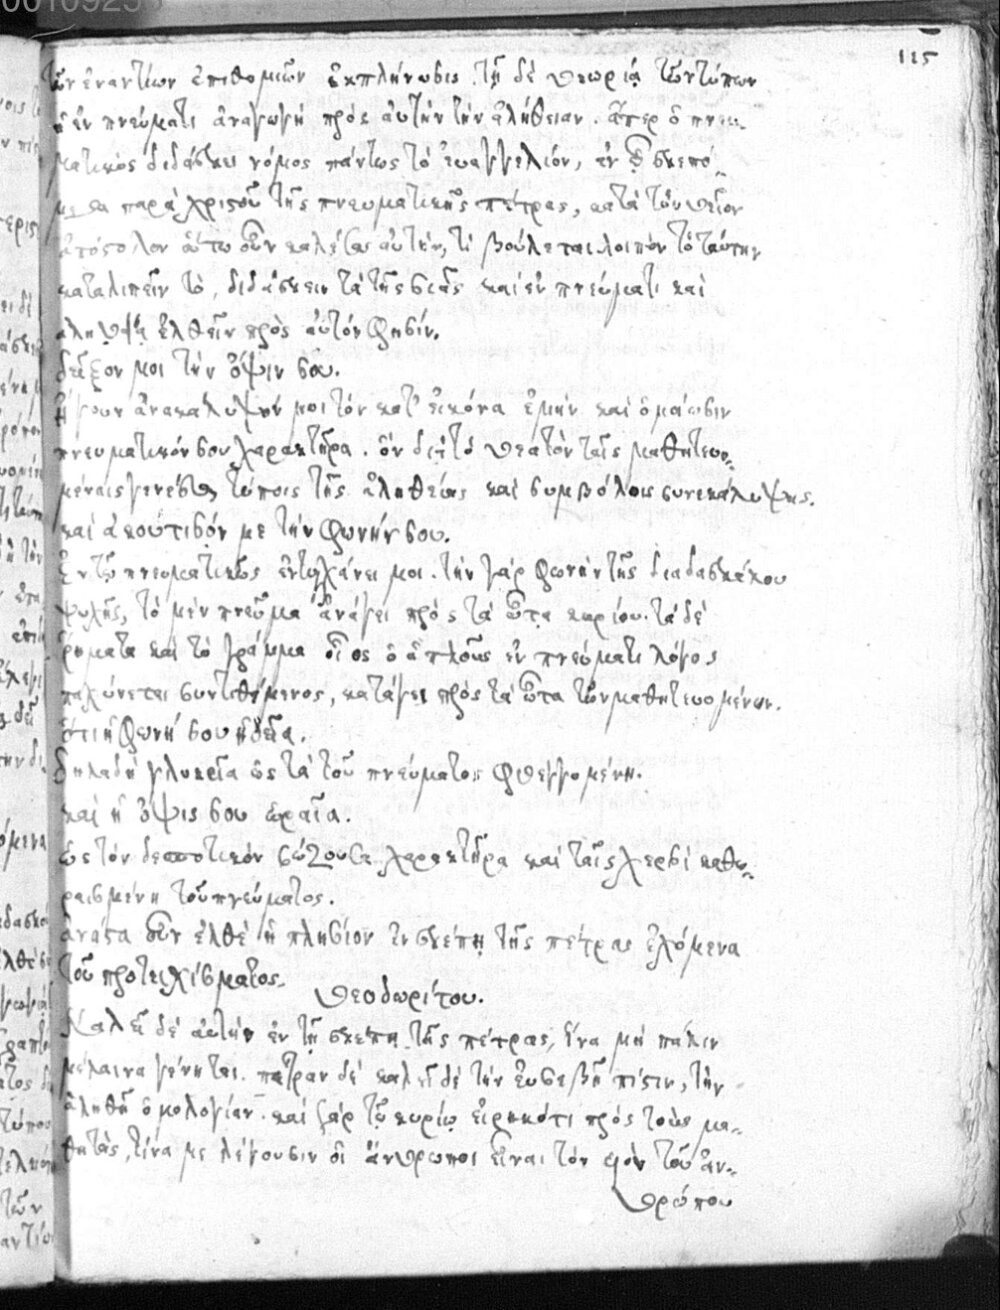 0010925
115
τῶν ἐναντίων ἐπιθυμιῶν ἐκπλήνωσις. τῇ δὲ θεωρίᾳ τῶν τύπων
ἡ ἐν πνεύματι ἀναγωγὴ πρὸς αὐτὴν τὴν ἀλήθειαν. ἅπερ ὁ πνευ-
ματικὸς διδάσκει νόμος πάντως τὸ εὐαγγέλιόν, ἐν ᾧ σκεπό
μεθα παρὰ χριστοῦ τῆς πνευματικῆς πέτρας, κατὰ τὸν θεῖον
ἀπόστολον οὕτω οὖν καλέσας αὐτὴν, τί βούλεται λοιπὸν τὸ ταύτην
καταλιπεῖν τὸ, διδάσκειν τὰ τῆς σκιᾶς καὶ ἐν πνεύματι καὶ
ἀληθείᾳ ἐλθεῖν πρὸς αὐτον φησίν,
δεῖξον μοι τὴν ὄψιν σου.
ἤγουν ἀνακάλυψόν μοι τὸν κατ' εἰκόνα ἐμὴν καὶ ὁμοίωσιν
πνευματικόν σου χαρακτῆρα. ὃν διὰ τὸ θεατὸν ταῖς μαθητευο-
μέναις γενέσθαι τύποις τῆς ἀληθείας καὶ συμβόλοις συνεκάλυψας.
καὶ ἀκούτισόν με τὴν φωνήν σου.
Ἐν τῷ πνευματικῶς ἐντυγχάνει μοι. τὴν γὰρ φωνὴν τῆς διδασκάλου
ψυχῆς, τὸ μὲν πνεῦμα ἀνάγει πρὸς τὰ ὦτα κυρίου. τὰ δὲ
ῥήματα καὶ τὸ γράμμα οἷος ὁ ἁπλοῦς ἐν πνεύματι λόγος
παχύνεται συντιθέμενος, κατάγει πρὸς τὰ ὦτα τῶν μαθητευομένων.
ὅτι ἡ φωνή σου ἡδεῖα.
δηλαδὴ γλυκεῖα ὡς τὰ τοῦ πνεύματος φθεγγομένη.
καὶ ἡ ὄψις σου ὡραῖα.
ὡς τὸν δεσποτικὸν σώζουσα χαρακτῆρα καὶ ταῖς χερσὶ καθω-
ραισμένη τοῦ πνεύματος.
ἀνάστα οὖν ἐλθὲ ἡ πλησίον ἐν σκέπῃ τῆς πέτρας ἐχόμενα
τοῦ προτειχίσματος.
θεοδωρίτου.
Καλεῖ δὲ αὐτὴν ἐν τῇ σκέπῃ τῆς πέτρας, ἵνα μὴ πάλιν
μέλαινα γένηται. πέτραν δὲ καλεῖ δὲ τὴν εὐσεβῆ πίστιν, τὴν
ἀληθῆ ὁμολογίαν. καὶ γὰρ τῷ κυρίῳ εἰρηκότι πρὸς τοὺς μα-
θητὰς, τίνα με λέγουσιν οἱ ἄνθρωποι εἶναι τὸν υἱὸν τοῦ ἀν-
θρώπου